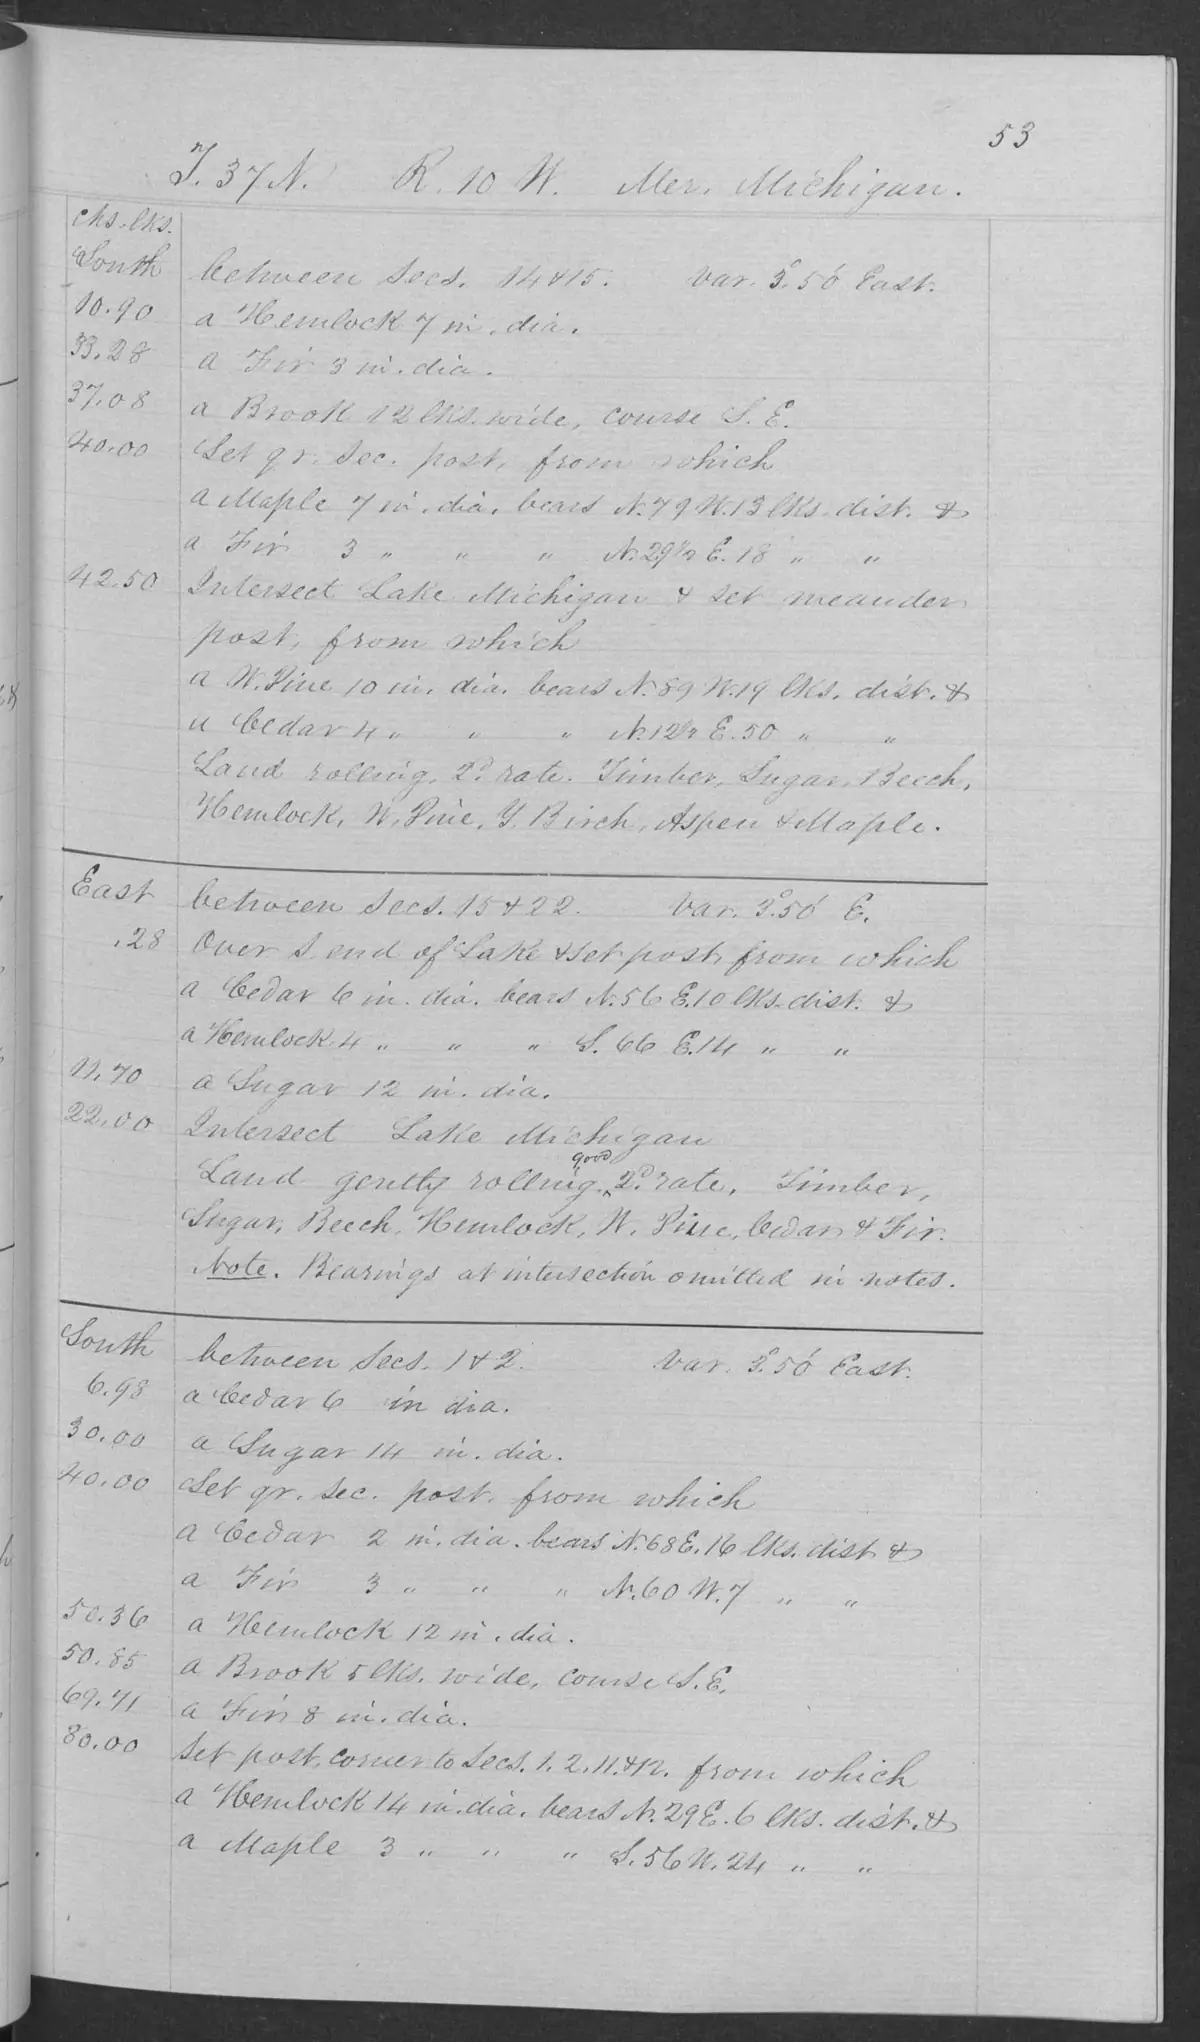 53
T. 37 N. R. 10 W. Mer. Michigan.
chs. lks.
South between Secs. 14 & 15. Var. 3°.50' East.
10.90 a Hemlock 7 in. dia.
33.28 a Fir 3 in. dia.
37.08 a Brook 12 lks. wide, course S. E.
40.00 Set qr. Sec. post, from which
a Maple 7 in. dia. bears N. 79 W. 13 lks. dist. &
a Fir 3 " " " N. 29 1/2 E. 18 " "
42.50 Intersect Lake Michigan & set meander
post, from which
a W. Pine 10 in. dia. bears N. 89 W. 19 lks. dist. &
a Cedar 4 " " " N. 12 1/2 E. 50 " "
Land rolling, 2d. rate. Timber, Sugar, Beech,
Hemlock, W. Pine, Y. Birch, Aspen & Maple.
East between Secs. 15 & 22. Var. 3°.50' E.
.28 Over S. end of Lake & set post, from which
a Cedar 6 in. dia. bears N. 56 E. 10 lks. dist. &
a Hemlock 4 " " " S. 66 E. 14 " "
11.70 a Sugar 12 in. dia.
22.00 Intersect Lake Michigan
Land gently rolling, good 2d. rate. Timber,
Sugar, Beech, Hemlock, W. Pine, Cedar & Fir.
Note. Bearings at intersection omitted in notes.
South between Secs. 1 & 2. Var. 3°.50' East.
6.93 a Cedar 6 in dia.
30.00 a Sugar 14 in. dia.
40.00 Set qr. Sec. post, from which
a Cedar 2 in. dia. bears N. 68 E. 16 lks. dist &
a Fir 3 " " " N. 60 W. 7 " "
50.36 a Hemlock 12 in. dia.
50.85 a Brook 5 lks. wide, course S. E.
69.71 a Fir 8 in. dia.
80.00 Set post, corner to Secs. 1. 2. 11. & 12. from which
a Hemlock 14 in. dia. bears N. 29 E. 6 lks. dist. &
a Maple 3 " " " S. 56 W. 24 " "